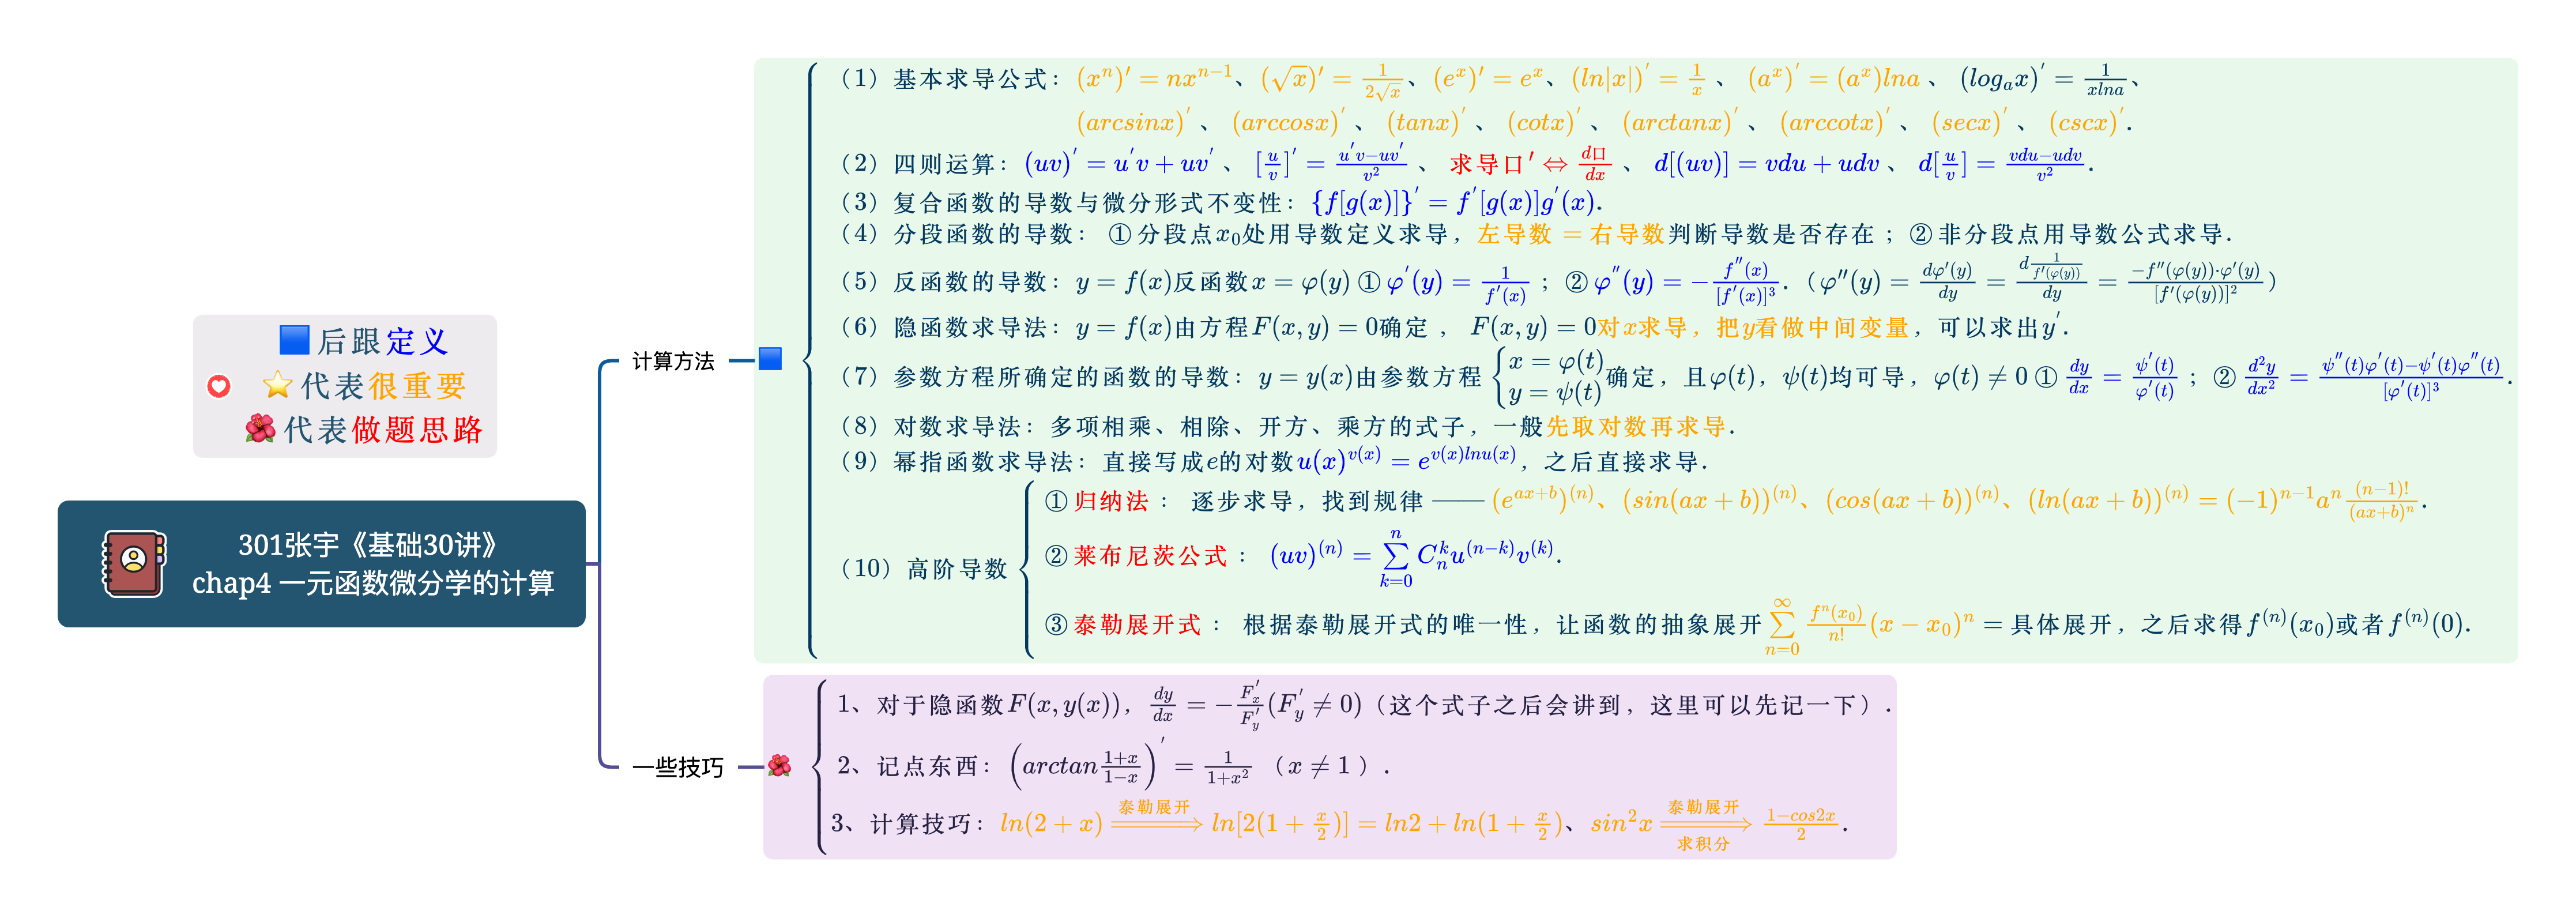 🟦后跟定义
⭐代表很重要
🌺代表做题思路
301张宇《基础30讲》
chap4 一元函数微分学的计算
计算方法
（1）基本求导公式：$(x^n)' = nx^{n-1}$、$(\sqrt{x})' = \frac{1}{2\sqrt{x}}$、$(e^x)' = e^x$、$(ln|x|)' = \frac{1}{x}$、$(a^x)' = (a^x)lna$、$(log_a x)' = \frac{1}{xlna}$、
$(arcsinx)'$、$(arccosx)'$、$(tanx)'$、$(cotx)'$、$(arctanx)'$、$(arccotx)'$、$(secx)'$、$(cscx)'$.
（2）四则运算：$(uv)' = u'v + uv'$、$[\frac{u}{v}]' = \frac{u'v-uv'}{v^2}$、求导口$' \Leftrightarrow \frac{d口}{dx}$、$d[(uv)] = vdu + udv$、$d[\frac{u}{v}] = \frac{vdu-udv}{v^2}$.
（3）复合函数的导数与微分形式不变性：$\{f[g(x)]\}' = f'[g(x)]g'(x)$.
（4）分段函数的导数：①分段点$x_0$处用导数定义求导，左导数 = 右导数判断导数是否存在；②非分段点用导数公式求导.
（5）反函数的导数：$y = f(x)$反函数$x = φ(y)$ ①$φ'(y) = \frac{1}{f'(x)}$；②$φ''(y) = -\frac{f''(x)}{[f'(x)]^3}$.（$φ''(y) = \frac{dφ'(y)}{dy} = \frac{d\frac{1}{f'(φ(y))}}{dy} = \frac{-f''(φ(y))·φ'(y)}{[f'(φ(y))]^2}$）
（6）隐函数求导法：$y = f(x)$由方程$F(x,y) = 0$确定，$F(x,y) = 0$对$x$求导，把$y$看做中间变量，可以求出$y'$.
（7）参数方程所确定的函数的导数：$y = y(x)$由参数方程$\begin{cases} x = φ(t) \\ y = ψ(t) \end{cases}$确定，且$φ(t)$，$ψ(t)$均可导，$φ(t) ≠ 0$ ①$\frac{dy}{dx} = \frac{ψ'(t)}{φ'(t)}$；②$\frac{d^2y}{dx^2} = \frac{ψ''(t)φ'(t)-ψ'(t)φ''(t)}{[φ'(t)]^3}$.
（8）对数求导法：多项相乘、相除、开方、乘方的式子，一般先取对数再求导.
（9）幂指函数求导法：直接写成$e$的对数$u(x)^{v(x)} = e^{v(x)lnu(x)}$，之后直接求导.
（10）高阶导数
①归纳法：逐步求导，找到规律 ——$(e^{ax+b})^{(n)}$、$(sin(ax+b))^{(n)}$、$(cos(ax+b))^{(n)}$、$(ln(ax+b))^{(n)} = (-1)^{n-1}a^n\frac{(n-1)!}{(ax+b)^n}$.
②莱布尼茨公式：$(uv)^{(n)} = \sum_{k=0}^{n} C_n^k u^{(n-k)}v^{(k)}$.
③泰勒展开式：根据泰勒展开式的唯一性，让函数的抽象展开$\sum_{n=0}^{∞} \frac{f^n(x_0)}{n!}(x-x_0)^n$ = 具体展开，之后求得$f^{(n)}(x_0)$或者$f^{(n)}(0)$.
一些技巧
1、对于隐函数$F(x,y(x))$，$\frac{dy}{dx} = -\frac{F'_x}{F'_y}(F'_y ≠ 0)$（这个式子之后会讲到，这里可以先记一下）.
2、记点东西：$\left(arctan\frac{1+x}{1-x}\right)' = \frac{1}{1+x^2}$（$x ≠ 1$）.
3、计算技巧：$ln(2+x) \xRightarrow{泰勒展开} ln[2(1+\frac{x}{2})] = ln2 + ln(1+\frac{x}{2})$、$sin^2x \xRightarrow[求积分]{泰勒展开} \frac{1-cos2x}{2}$.